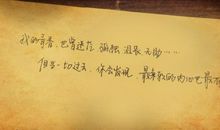 我的青春，也曾迷茫 孤独 沮丧 无助……
但当一切过去，你会发现，最柔软的内心也最